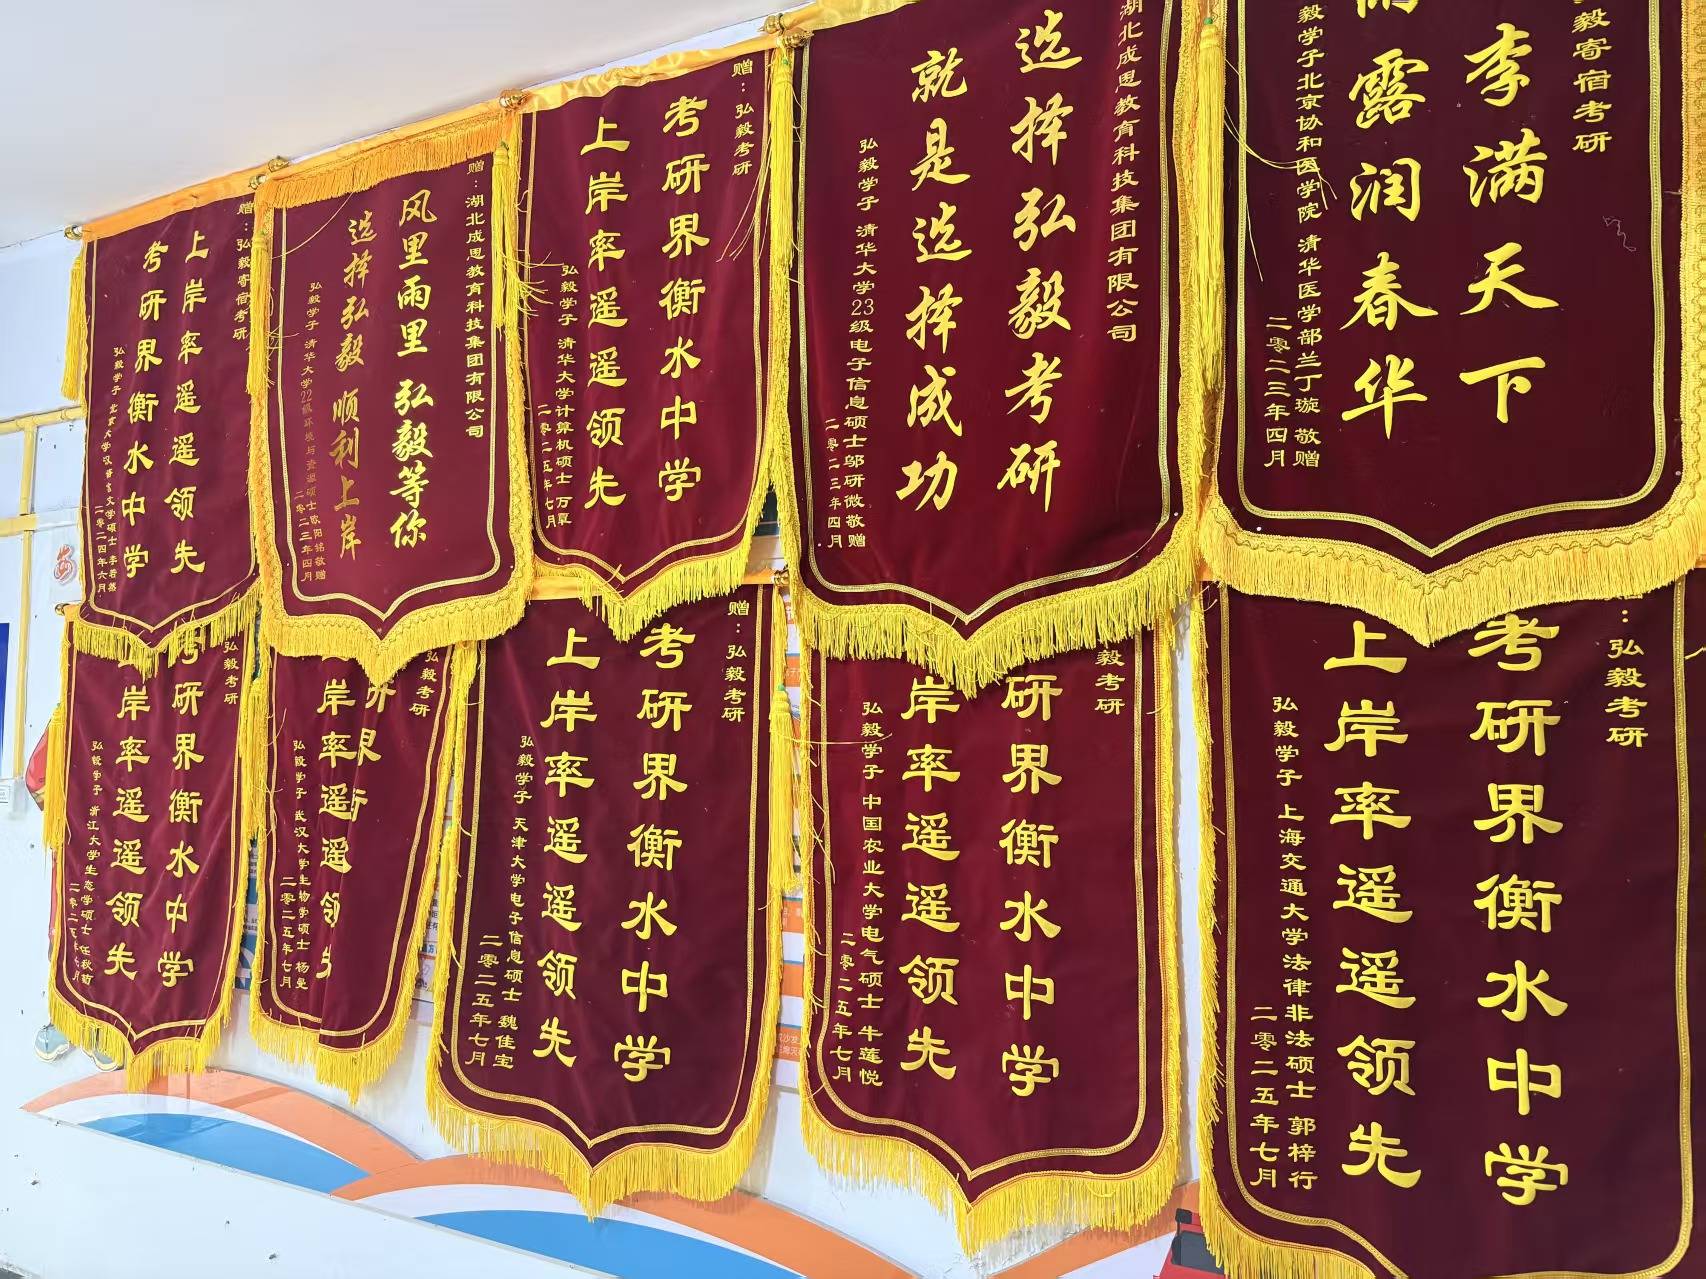 赠：弘毅寄宿考研
上岸率遥遥领先
考研界衡水中学
弘毅学子 北京大学汉语言文学硕士 李若然
二零二四年六月
赠：湖北成思教育科技集团有限公司
风里雨里 弘毅等你
选择弘毅 顺利上岸
弘毅学子 清华大学22级环境与资源硕士欧阳铭敬赠
二零二三年四月
赠：弘毅考研
考研界衡水中学
上岸率遥遥领先
弘毅学子 清华大学计算机硕士 万享
二零二五年七月
湖北成思教育科技集团有限公司
选择弘毅考研
就是选择成功
弘毅学子 清华大学23级电子信息硕士邬研微敬赠
二零二三年四月
毅寄宿考研
李满天下
雨露润春华
毅学子北京协和医学院 清华医学部兰丁璇 敬赠
二零二三年四月
弘毅考研
考研界衡水中学
上岸率遥遥领先
弘毅学子 浙江大学生态学硕士 任秋菊
二零二五年七月
弘毅考研
研界
岸率遥遥领先
弘毅学子 武汉大学生物学硕士 杨曼
二零二五年七月
赠：弘毅考研
考研界衡水中学
上岸率遥遥领先
弘毅学子 天津大学电子信息硕士 魏佳宝
二零二五年七月
毅考研
研界衡水中学
岸率遥遥领先
弘毅学子 中国农业大学电气硕士 牛莲悦
二零二五年七月
：弘毅考研
考研界衡水中学
上岸率遥遥领先
弘毅学子 上海交通大学法律非法硕士 郭梓行
二零二五年七月